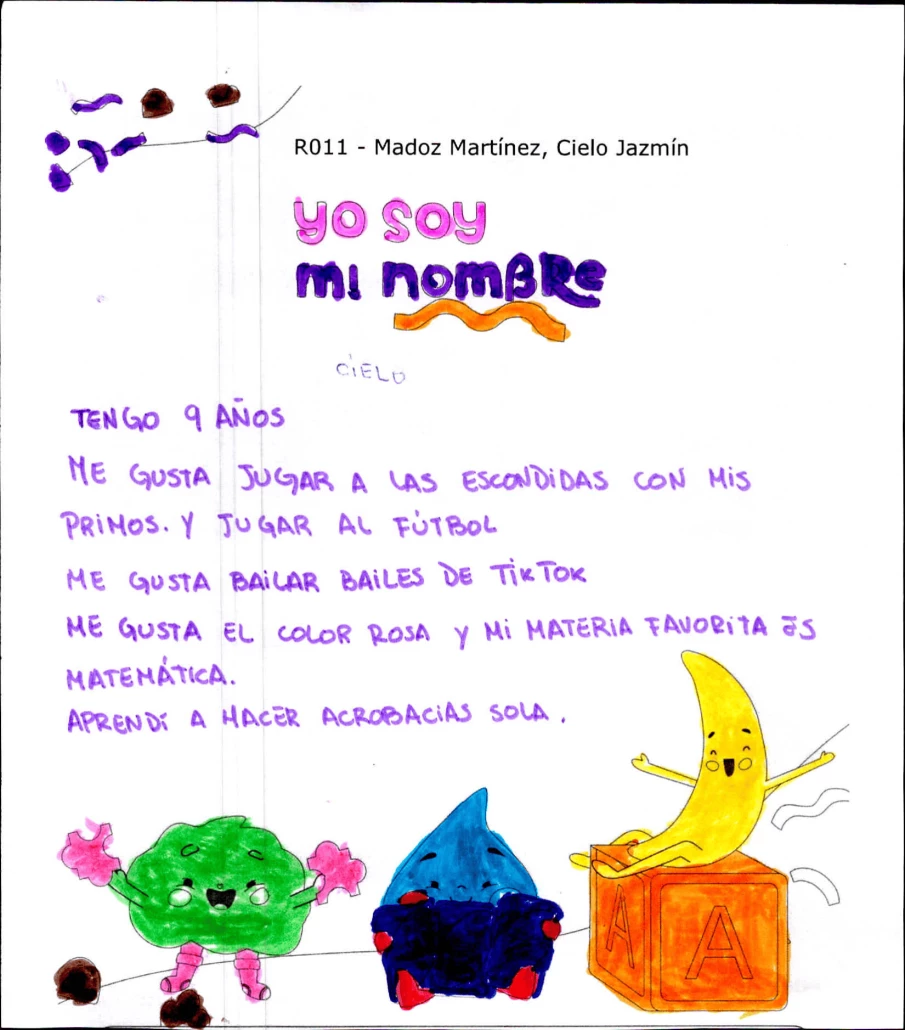 R011 - Madoz Martínez, Cielo Jazmín
yo soy
mi nomBRe
CiELO
TENGO 9 AÑOS
ME GUSTA JUGAR A LAS ESCONDIDAS CON MiS
PRiMOS. Y JUGAR AL FÚTBOL
ME GUSTA BAiLAR BAiLES DE TiKTOK
ME GUSTA EL COLOR ROSA y Mi MATERiA FAVORiTA ES
MATEMÁTiCA.
APRENDí A HACER ACROBACiAS SOLA.
A A